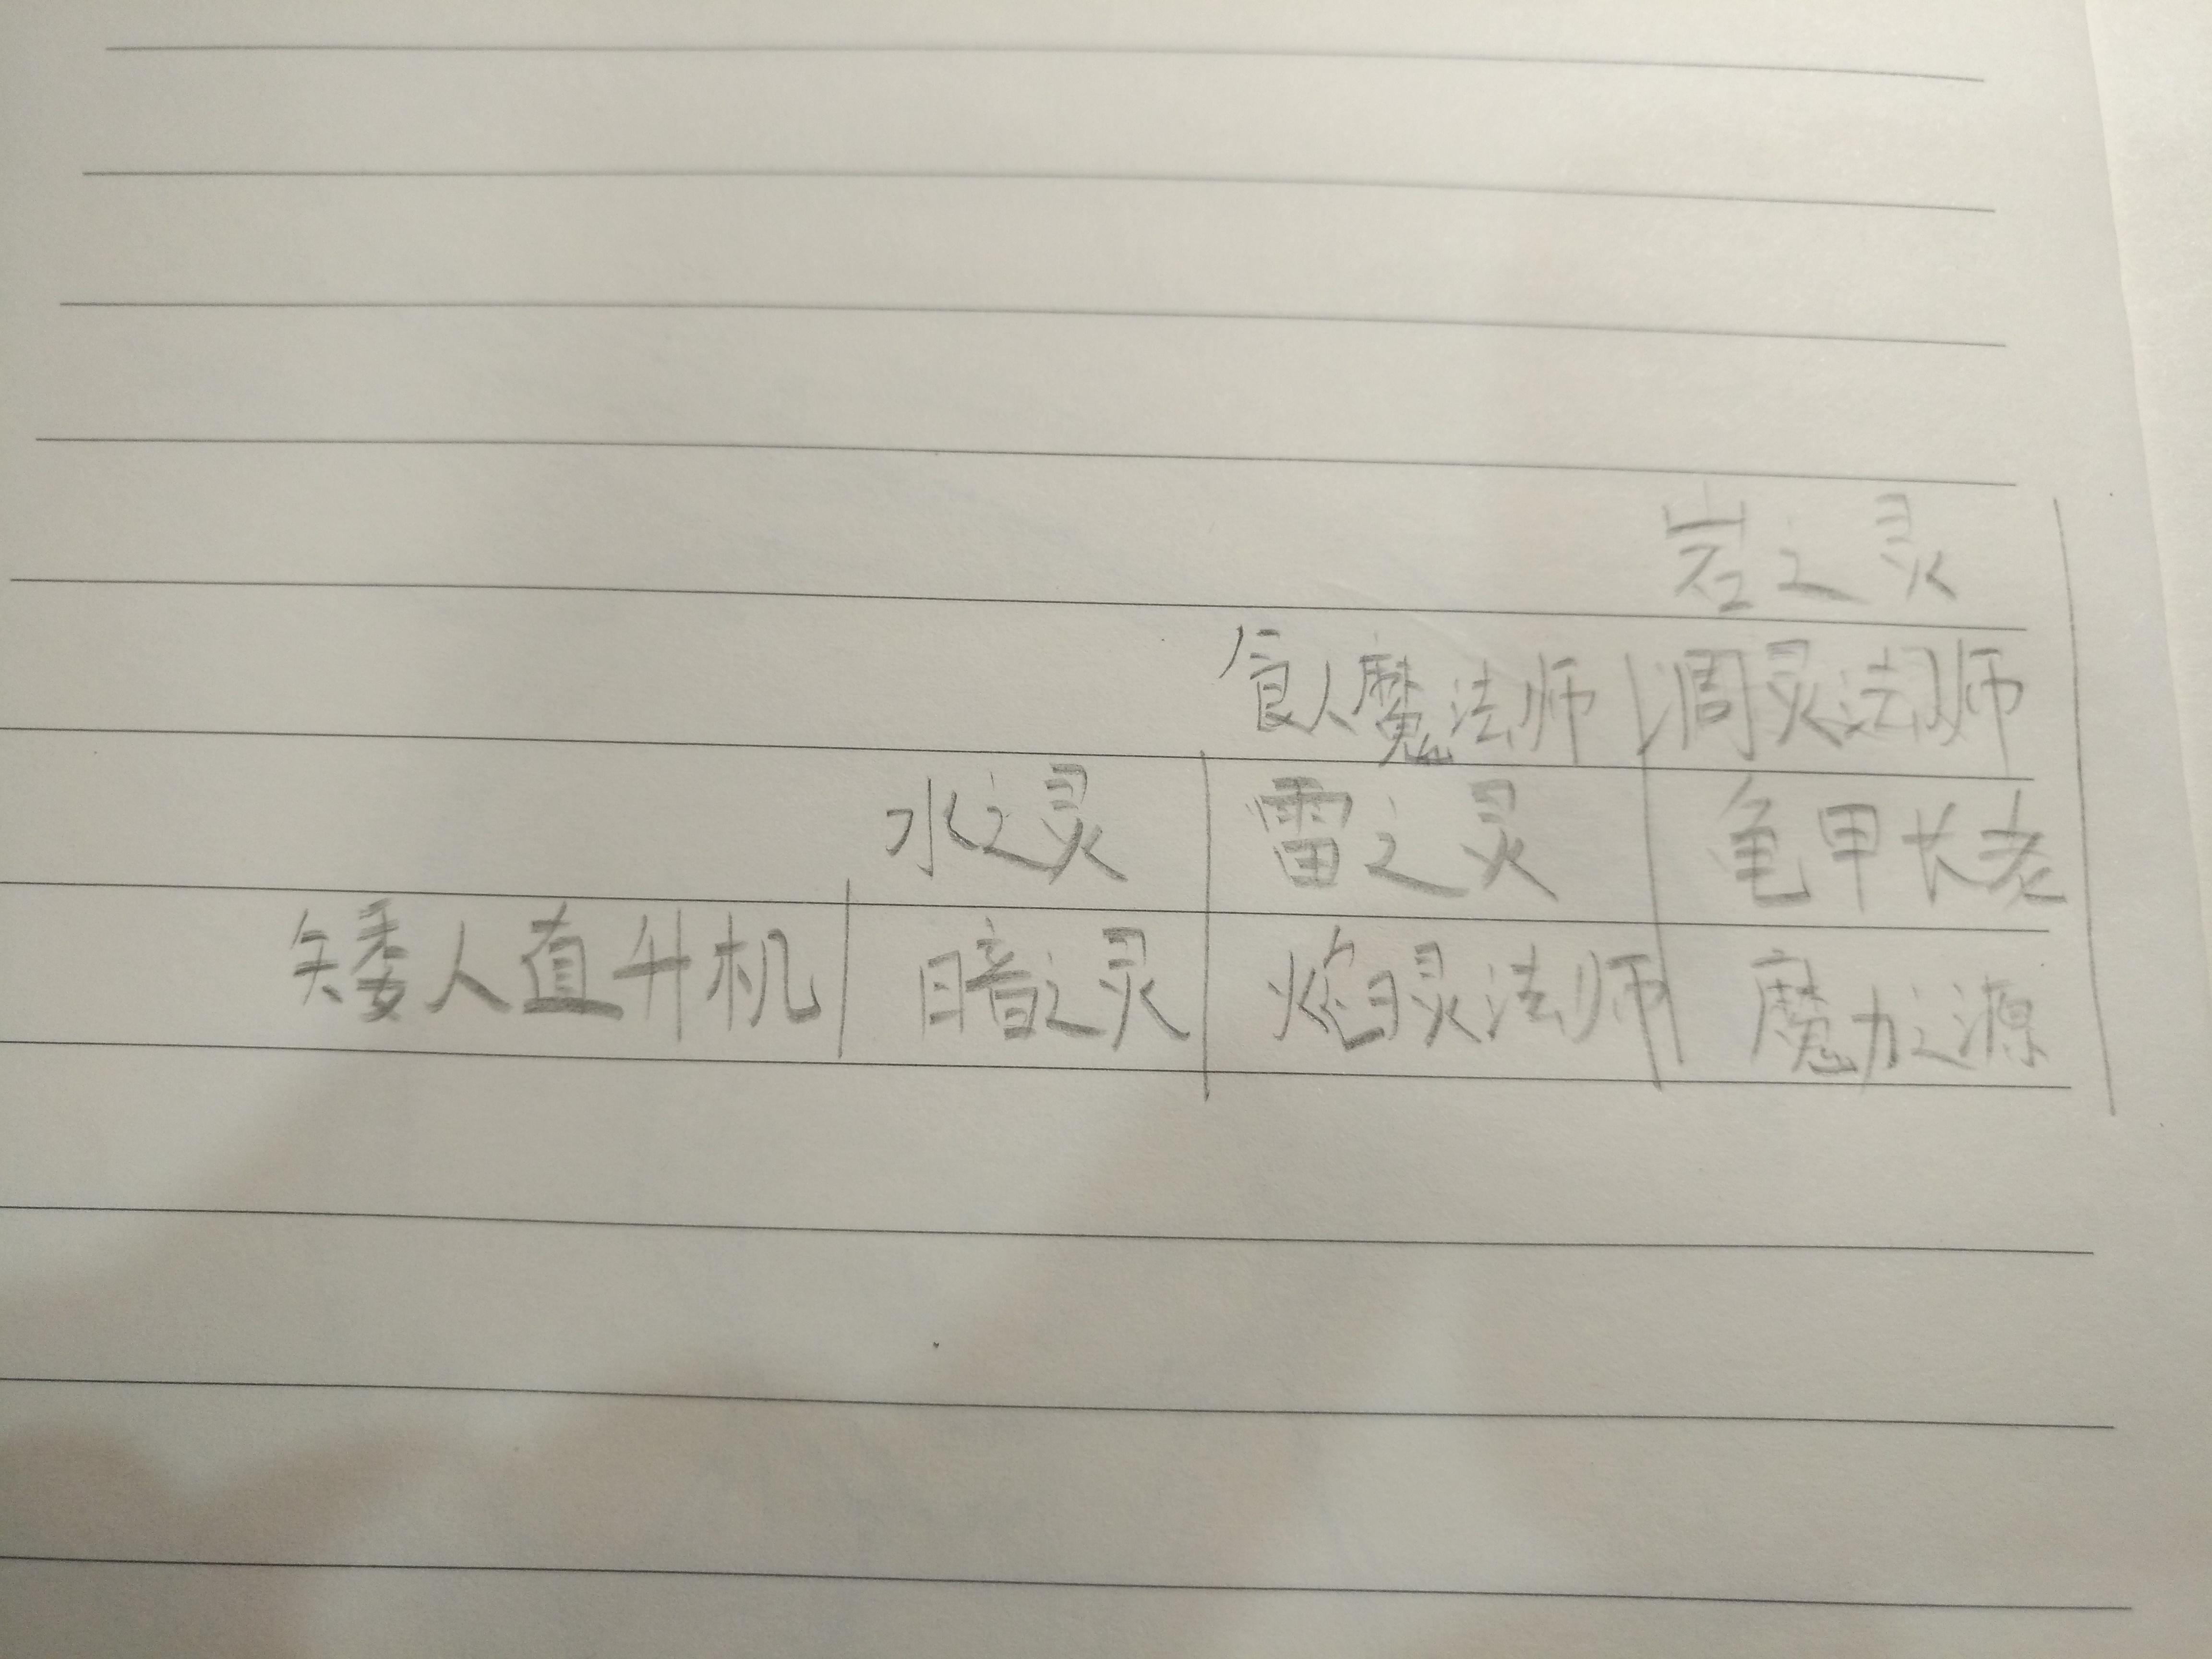 岩之灵
食人魔法师 凋灵法师
水之灵 雷之灵 龟甲长老
矮人直升机 暗之灵 焰灵法师 魔力之源